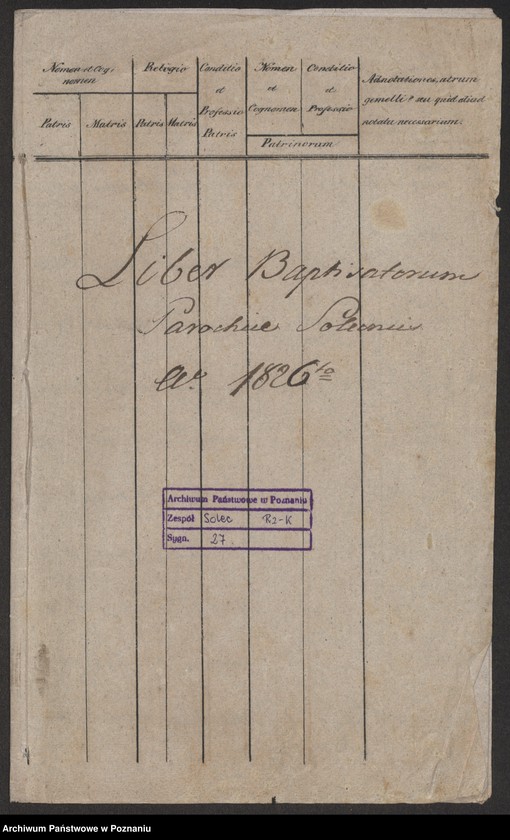 Nomen et Cog,
nomen
Patris
Matris
Religio
Patris
Matris
Conditio
et
Professio
Patris
Nomen
et
Cognomen
Conditio
et
Professio
Patrinorum
Adnotationes, utrum
gemelli? au quid aliud
notatu necessarium.
Liber Baptisatorum
Parochiæ Solecensis
Ao. 1826to
Archiwum Państwowe w Poznaniu
Zespół Solec Rz-K
Sygn. 27.
Archiwum Państwowe w Poznaniu